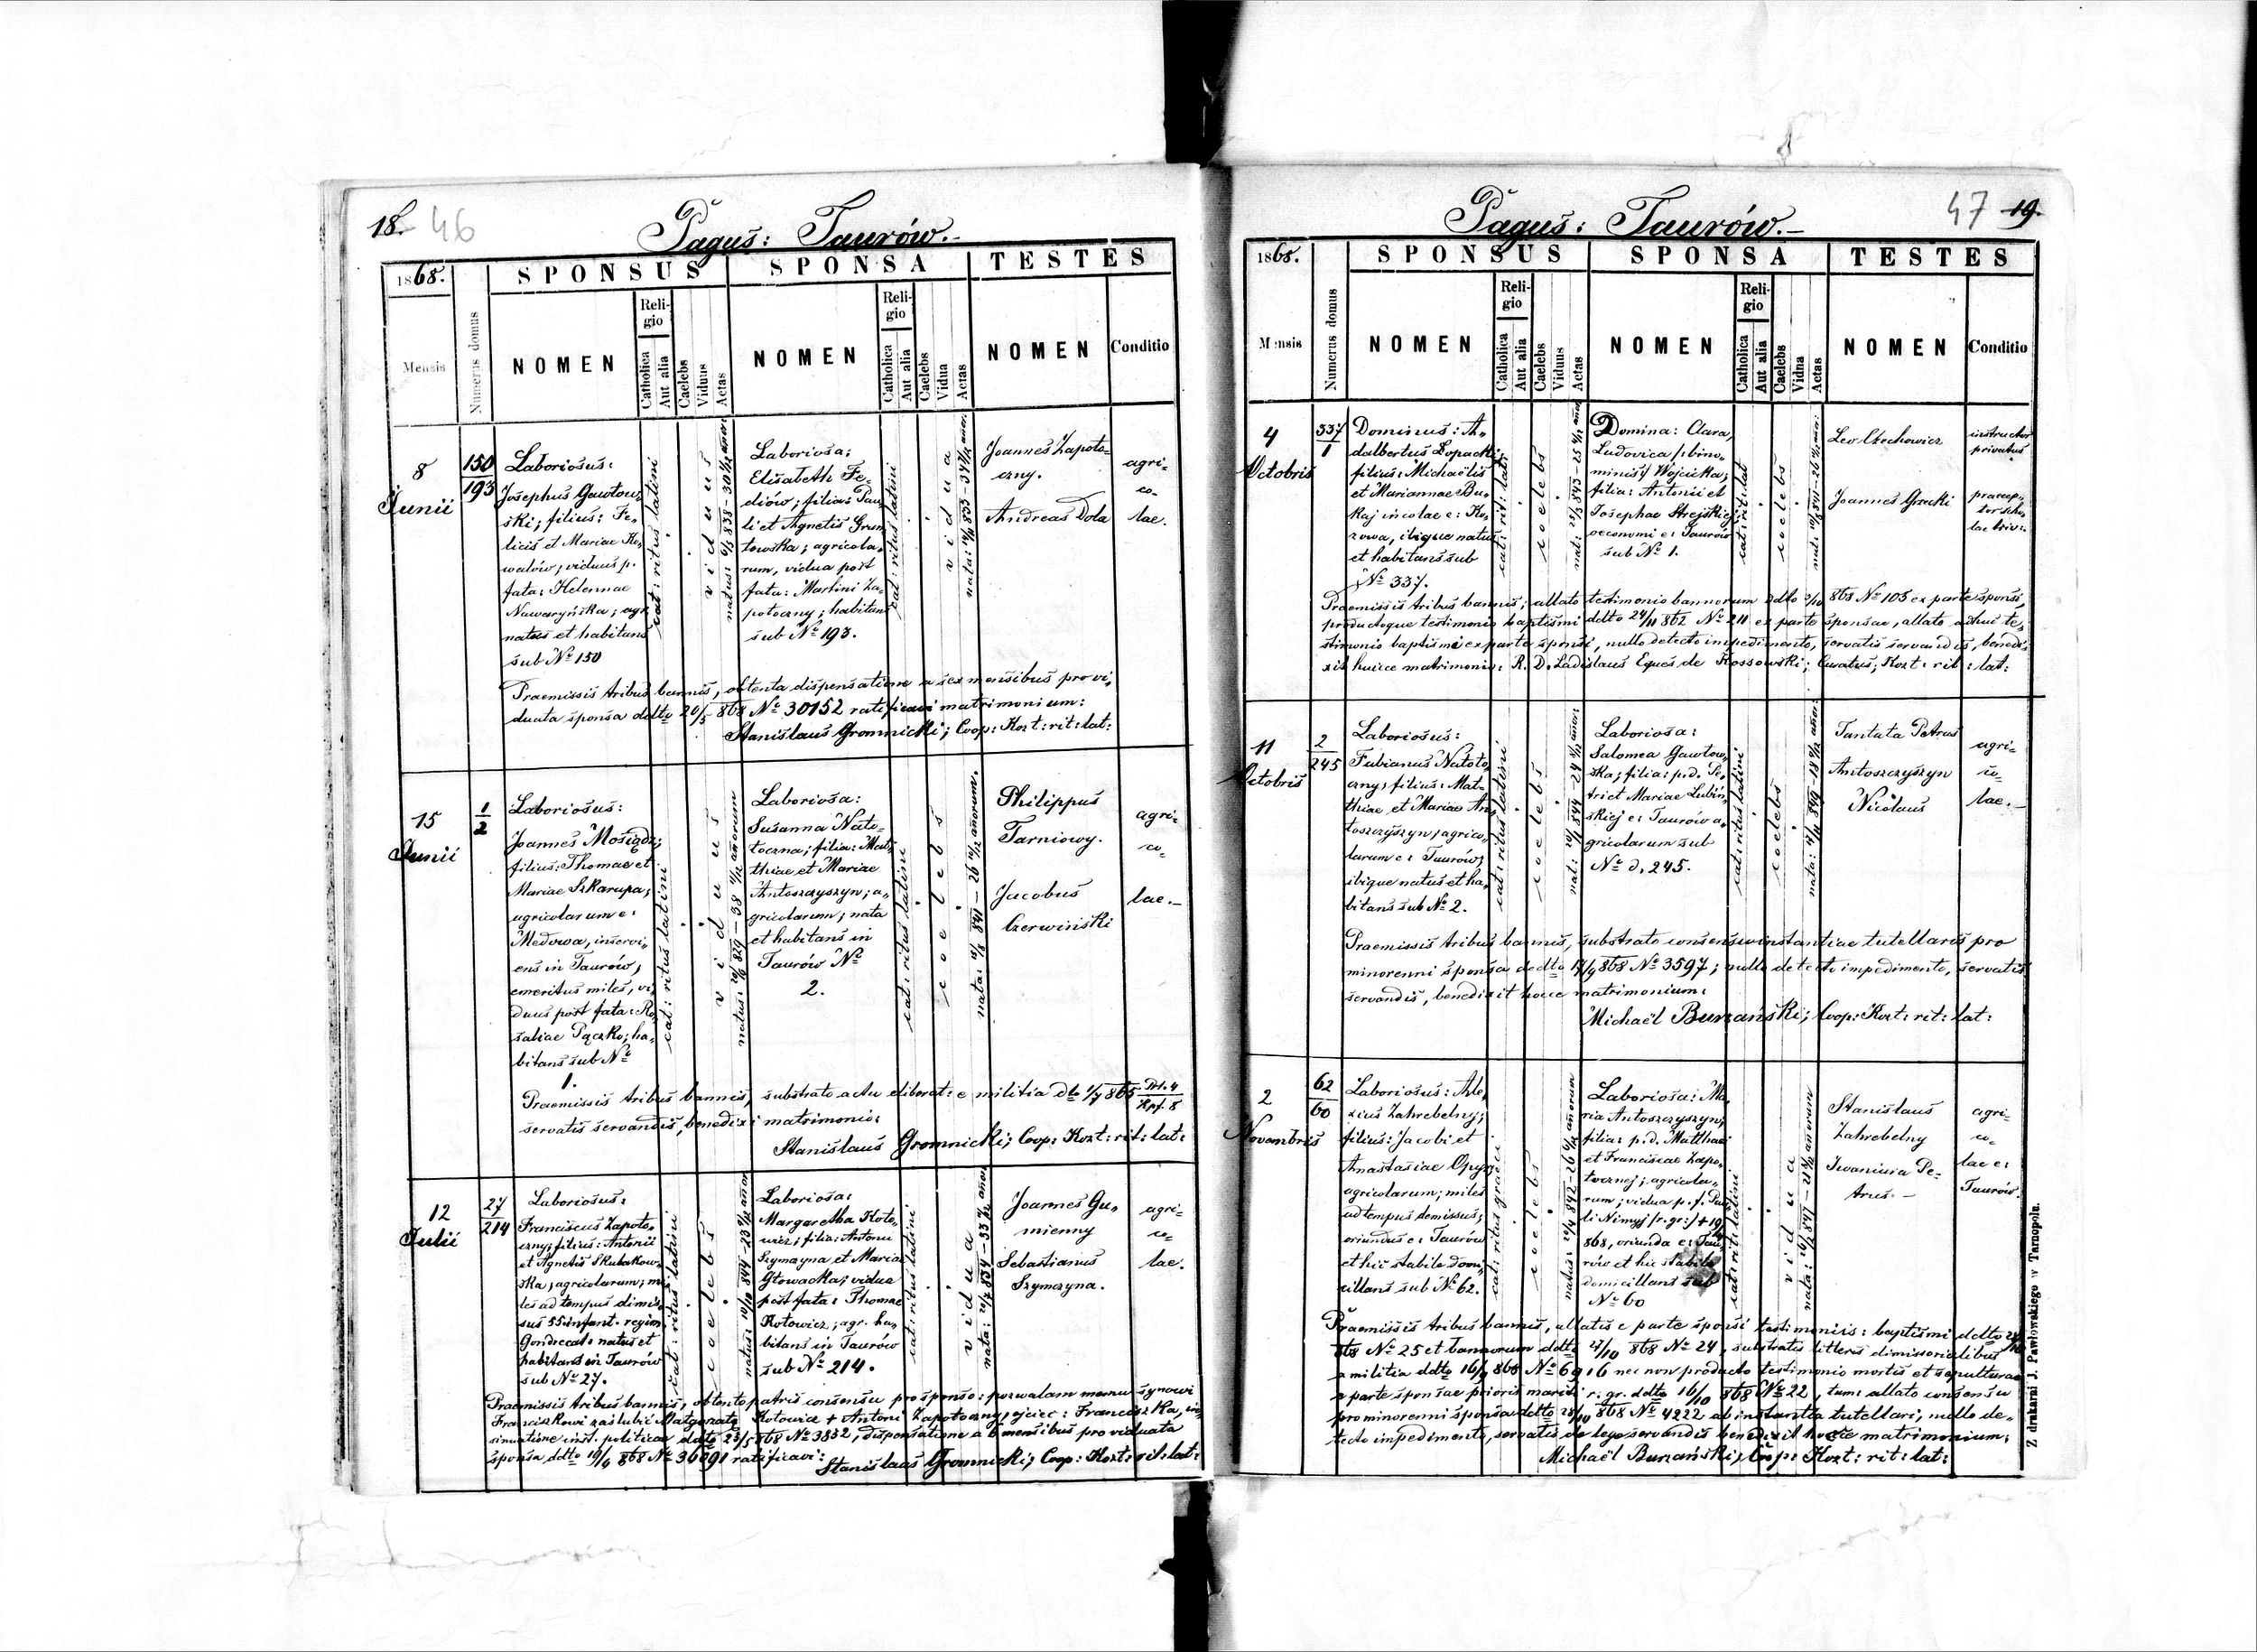 18. 46
Paguš: Taurów.-
1868.
SPONSUS
SPONSA
TESTES
Mensis
Numerus domus
NOMEN
Religio
Catholica
Aut alia
Caelebs
Viduus
Aetas
NOMEN
Religio
Catholica
Aut alia
Caelebs
Vidua
Aetas
NOMEN
Conditio
8
Junii
150
193
Laboriosus:
Josephus Gawłow-
ski; filius: Fe-
licis et Mariae Ko-
walów; viduus p.
fata: Helennae
Nawaryńska; agr.
natus et habitans
sub No 150
cat: ritus latini
viduus
Laboriosa:
Elisabeth Fe-
diów; filia: Pau-
li et Agnetis Grun-
towska; agricola-
rum, vidua post
fata: Martini Za-
potoczny; habitans
sub No 193.
cat: ritus latini
vidua
Joannes Zapoto-
czny.
Andreas Dola
agri-
co-
lae.
Praemissis tribus bannis, obtenta dispensatione a sex mensibus pro vi-
duata sponsa ddto 20/5 868 No 30152 ratificavi matrimonium:
Stanislaus Gromnicki; Coop: Kozt: rit: lat:
15
Junii
1
2
Laboriosus:
Joannes Mosiądz;
filius: Thomae et
Mariae Szkarupa;
agricolarum e:
Medowa, inservi-
ens in Taurów;
emeritus miles, vi-
duus post fata: Ro-
saliae Pączko; ha-
bitans sub No
1.
cat: ritus latini
viduus
Laboriosa:
Susanna Nato-
toczna; filia: Mat-
thiae et Mariae
Antoszczyszyn; a-
gricolarum; nata
et habitans in
Taurów No
2.
cat: ritus latini
coelebs
Philippus
Tarniowy.
Jacobus
Czerwiński
agri-
co-
lae.-
Praemissis tribus bannis, substrato actu eliberat: e militia dto 1/7 865
servatis servandis, benedixi matrimonio:
Stanislaus Gromnicki; Coop: Kozt: rit: lat:
12
Julii
27
214
Laboriosus:
Franciscus Zapoto-
czny; filius: Antonii
et Agnetis Skubakow-
ska; agricolarum; mi-
les ad tempus dimis-
sus 55 infant. region.
Gondrecat: natus et
habitans in Taurów
sub No 27.
cat: ritus latini
coelebs
Laboriosa:
Margaretha Koto-
wicz; filia: Antonii
Szymczyna et Maria
Głowacka; vidua
post fata: Thomae
Kotowicz; agr. ha-
bitans in Taurów
sub No 214.
cat: ritus latini
vidua
Joannes Gu-
mienny
Sebastianus
Szymczyna.
agri-
co-
lae.
Praemissis tribus bannis, obtento patris consensu pro sponso: pozwalam memu synowi
Franciszkowi zaślubić Małgorzatę Kotowicz + Antoni Zapotoczny, ojciec: Franciszka, in-
sinuatione inst. politicae ddto 23/5 868 No 3832, dispensatione a 6 mensibus pro viduata
sponsa ddto 19/6 868 No 36091 ratificavi: Stanislaus Gromnicki; Coop: Kozt: rit: lat:
47 19.
Paguš: Taurów.-
1868.
SPONSUS
SPONSA
TESTES
Mensis
Numerus domus
NOMEN
Religio
Catholica
Aut alia
Caelebs
Viduus
Aetas
NOMEN
Religio
Catholica
Aut alia
Caelebs
Vidua
Aetas
NOMEN
Conditio
4
Octobris
337
1
Dominus: A-
dalbertus Łopacki;
filius: Michaëlis
et Mariannae Bu-
kaj incolae e: Ko-
zowa, ibique natus
et habitans sub
No 337.
cat: rit: lati
coelebs
Domina: Clara,
Ludovica /: bino-
minis:/ Wojcicka;
filia: Antonii et
Josephae Strejskiej
oeconomi e: Taurów
sub No 1.
cat: rit: lat
coelebs
Leo Czechowicz
Joannes Grocki
instructor
privatus
praecep-
tor scho-
lae triv:
Praemissis tribus bannis; allato testimonio bannorum ddto 868 No 105 ex parte sponsi,
productoque testimonio baptismi ddto 24/11 862 No 211 ex parte sponsae, allato adhuc te-
stimonio baptismi ex parte sponsi, nullo detecto impedimento, servatis servandis, benedi-
xit huicce matrimonio: R. D. Ladislaus Eques de Kossowski; Curatus; Kozt: rit: lat:
11
Octobris
2
245
Laboriosus:
Fabianus Natoto-
czny; filius: Mat-
thiae et Mariae An-
toszczyszyn; agrico-
larum e: Taurów;
ibique natus et ha-
bitans sub No 2.
cat: ritus latini
coelebs
Laboriosa:
Salomea Gawłow-
ska; filia: p. d. Pe-
tri et Mariae Lubin-
skiej e: Taurów a-
gricolarum sub
No d. 245.
cat: ritus latini
coelebs
Tantata Petrus
Antoszczyszyn
Nicolaus
agri-
co-
lae.-
Praemissis tribus bannis, substrato consensu instantiae tutellaris pro
minorenni sponsa de ddto 17/9 868 No 3597; nullo detecto impedimento, servatis
servandis, benedixit hocce matrimonium:
Michaël Burzański; Coop: Kozt: rit: lat:
2
Novembris
62
60
Laboriosus: Ale-
xius Zahrebelny;
filius: Jacobi et
Anastasiae Opyr
agricolarum; miles
ad tempus demissus;
oriundus e: Taurów
et hic stabile domi-
cillans sub No 62.
cat: ritus graeci
coelebs
Laboriosa: Ma-
ria Antoszczyszyn;
filia: p. d. Matthaei
et Franciscae Zapo-
tocznej; agricola-
rum; vidua p. f. Pau-
li Nimyj /r. gr:/ + 19/
868, oriunda e: Tau-
rów et hic stabile
domicillans sub
No 60
cat: ritus latini
vidua
Stanislaus
Zahrebelny
Iwaniura Pe-
trus.-
agri-
co-
lae e:
Taurów.
Praemissis tribus bannis, allatis e parte sponsi testimoniis: baptismi ddto
868 No 25 et bannorum ddto 27/10 868 No 24, substratis litteris dimissorialibus
a militia ddto 16/9 868 No 6916 nec non producto testimonio mortis et sepulturae
e parte sponsae prioris mariti r. gr. ddto 16/10 868 No 22, tum: allato consensu
pro minorenni sponsa ddto 28/10 868 No 4222 ab instantia tutellari, nullo de-
tecto impedimento, servatis de lege servandis benedixit hocce matrimonium:
Michaël Burzański; Coop: Kozt: rit: lat:
Z drukarni J. Pawłowskiego w Tarnopolu.